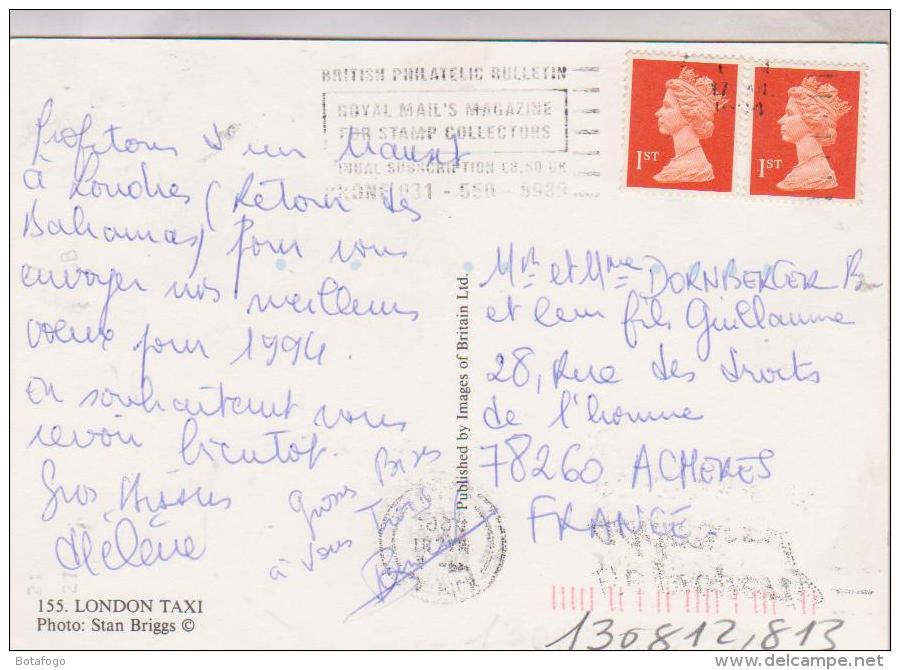 BRITISH PHILATELIC BULLETIN
ROYAL MAIL'S MAGAZINE
FOR STAMP COLLECTORS
ANNUAL SUBSCRIPTION £8.50 UK
PHONE 031 - 550 8989
1ST
1ST
Profitons d'un transit
à Londres (Retour des
Bahamas) pour vous
envoyer nos meilleurs
voeux pour 1994.
en souhaitant vous
revoir bientôt.
Gros Bisous
Hélène
Grosses Bises
à vous Trois
Published by Images of Britain Ltd.
Mr et Mme DORNBERGER B
et leur fils Guillaume
28, Rue des droits
de l'homme
78260 ACHERES
FRANCE
155. LONDON TAXI
Photo: Stan Briggs ©
130812,813
Botafogo
www.delcampe.net